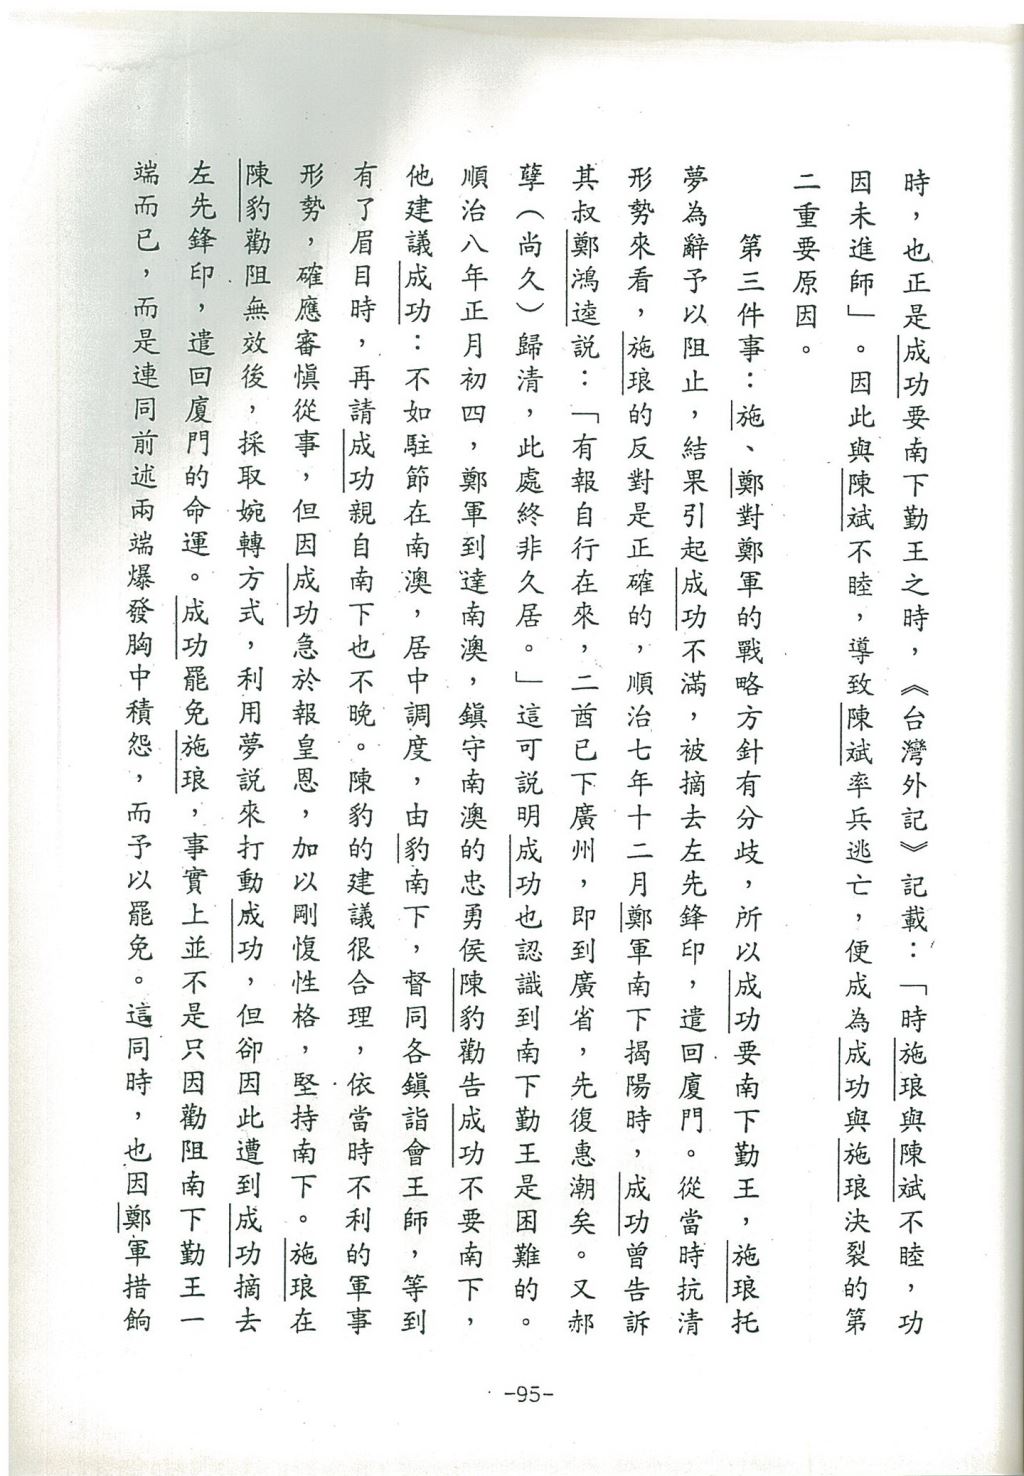 時，也正是成功要南下勤王之時，《台灣外記》記載：「時施琅與陳斌不睦，功
因未進師」。因此與陳斌不睦，導致陳斌率兵逃亡，便成為成功與施琅決裂的第
二重要原因。
第三件事：施、鄭對鄭軍的戰略方針有分歧，所以成功要南下勤王，施琅托
夢為辭予以阻止，結果引起成功不滿，被摘去左先鋒印，遣回廈門。從當時抗清
形勢來看，施琅的反對是正確的，順治七年十二月鄭軍南下揭陽時，成功曾告訴
其叔鄭鴻逵説：「有報自行在來，二酋已下廣州，即到廣省，先復惠潮矣。又郝
孽（尚久）歸清，此處終非久居。」這可説明成功也認識到南下勤王是困難的。
順治八年正月初四，鄭軍到達南澳，鎮守南澳的忠勇侯陳豹勸告成功不要南下，
他建議成功：不如駐節在南澳，居中調度，由豹南下，督同各鎮詣會王師，等到
有了眉目時，再請成功親自南下也不晚。陳豹的建議很合理，依當時不利的軍事
形勢，確應審慎從事，但因成功急於報皇恩，加以剛愎性格，堅持南下。施琅在
陳豹勸阻無效後，採取婉轉方式，利用夢説來打動成功，但卻因此遭到成功摘去
左先鋒印，遣回廈門的命運。成功罷免施琅，事實上並不是只因勸阻南下勤王一
端而已，而是連同前述兩端爆發胸中積怨，而予以罷免。這同時，也因鄭軍措餉
-95-